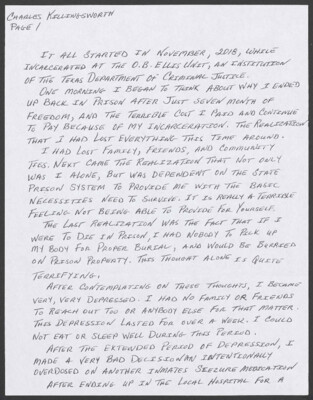 CHARLES KILLINGSWORTH
PAGE 1
IT ALL STARTED IN NOVEMBER, 2018, WHILE
INCARCERATED AT THE O.B. ELLIS UNIT, AN INSTITUTION
OF THE TEXAS DEPARTMENT OF CRIMINAL JUSTICE.
ONE MORNING I BEGAN TO THINK ABOUT WHY I ENDED
UP BACK IN PRISON AFTER JUST SEVEN MONTH OF
FREEDOM, AND THE TERRIBLE COST I PAID AND CONTINUE
TO PAY BECAUSE OF MY INCARCERATION. THE REALIZATION
THAT I HAD LOST EVERYTHING THIS TIME AROUND.
I HAD LOST FAMILY, FRIENDS, AND COMMUNITY
TIES. NEXT CAME THE REALIZATION THAT NOT ONLY
WAS I ALONE, BUT WAS DEPENDENT ON THE STATE
PRISON SYSTEM TO PROVIDE ME WITH THE BASIC
NECESSITIES NEED TO SURVIVE. IT IS REALLY A TERRIBLE
FEELING NOT BEING ABLE TO PROVIDE FOR YOURSELF.
THE LAST REALIZATION WAS THE FACT THAT IF I
WERE TO DIE IN PRISON, I HAD NOBODY TO PICK UP
MY BODY FOR PROPER BURIAL, AND WOULD BE BURRIED
ON PRISON PROPERTY. THIS THOUGHT ALONE IS QUITE
TERRIFYING.
AFTER CONTEMPLATING ON THOSE THOUGHTS, I BECAME
VERY, VERY DEPRESSED. I HAD NO FAMILY OR FRIENDS
TO REACH OUT TOO OR ANYBODY ELSE FOR THAT MATTER.
THIS DEPRESSION LASTED FOR OVER A WEEK. I COULD
NOT EAT OR SLEEP WELL DURING THIS PERIOD.
AFTER THE EXTENDED PERIOD OF DEPRESSION, I
MADE A VERY BAD DECISION AN INTENTIONALLY
OVERDOSED ON ANOTHER INMATES SEIZURE MEDICATION
AFTER ENDING UP IN THE LOCAL HOSPITAL FOR A